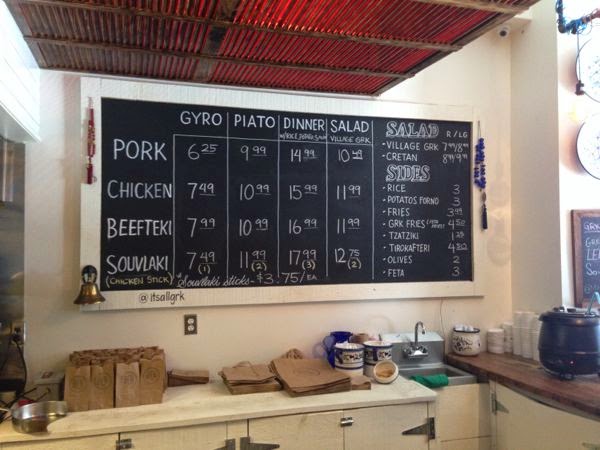 GYRO PIATO DINNER SALAD
W/RICE, PEPPER, SALAD VILLAGE GRK
PORK 6 25 9 99 14 99 10 49
CHICKEN 7 49 10 99 15 99 11 99
BEEFTEKI 7 99 10 99 16 99 11 99
SOUVLAKI 7 49 (1) 11 99 (2) 17 99 (3) 12 75 (2)
(CHICKEN STICK) Souvlaki Sticks - $3.75/EA
@itsallgrk
SALAD R/LG
• VILLAGE GRK 7 99/8 99
• CRETAN 8 99/9 99
SIDES
• RICE 3
• POTATOS FORNO 3
• FRIES 3 99
• GRK FRIES 4 50
• TZATZIKI 1 25
• TIROKAFTERI 4 50
• OLIVES 2
• FETA 3
GRK